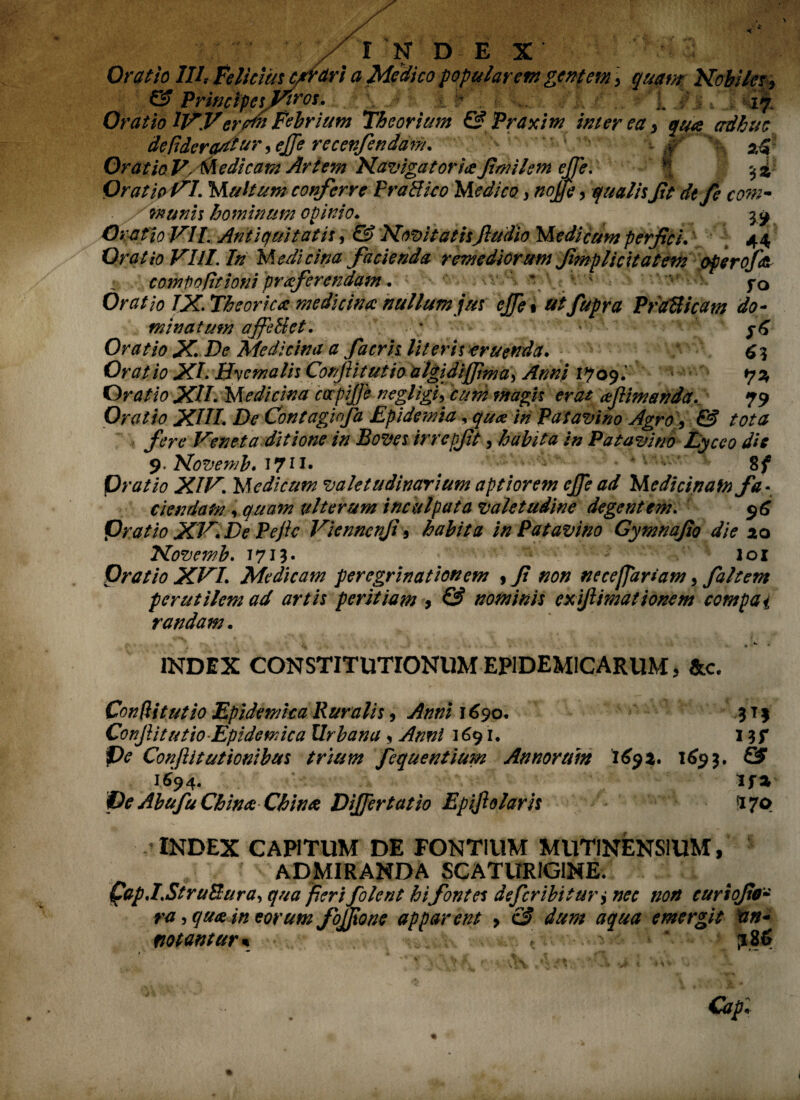 INDEX
Oratio III. Felicius curari a Medico popularem gentem, quam Nobiles,
& Principes Viros. 17
Oratio IV. Veram Febrium Theorium & Praxim inter ea, quæ adhuc
desiderantur, esse recensendam. 26
Oratio V. Medicam Artem Navigatoriæ similem esse. 32
Oratio VI. Multum conferre Practico Medico, nosse, qualis sit de se com-
munis hominum opinio. 39
Oratio VII. Antiquitatis, & Novitatis studio Medicum perfici. 44
Oratio VIII. In Medicina facienda remediorum simplicitatem operosæ
compositioni præferendam. 50
Oratio IX. Theoricæ medicinæ nullum jus esse, ut supra Practicam do-
minatum affectet. 56
Oratio X. De Medicina a sacris literis eruenda. 63
Oratio XI. Hyemalis Constitutio algidissima, Anni 1709. 72
Oratio XII. Medicina cœpisse negligi, cum magis erat æstimanda. 79
Oratio XIII. De Contagiosa Epidemia, quæ in Patavino Agro, & tota
fere Veneta ditione in Boves irrepsit, habita in Patavino Lyceo die
9. Novemb. 1711. 85
Oratio XIV. Medicum valetudinarium aptiorem esse ad Medicinam fa-
ciendam, quam alterum inculpata valetudine degentem. 96
Oratio XV. De Peste Viennensi, habita in Patavino Gymnasio die 20
Novemb. 1713. 101
Oratio XVI. Medicam peregrinationem, si non necessariam, saltem
perutilem ad artis peritiam, & nominis existimationem compa-
randam.
INDEX CONSTITUTIONUM EPIDEMICARUM, &c.
Constitutio Epidemica Ruralis, Anni 1690. 313
Constitutio Epidemica Urbana, Anni 1691. 135
De Constitutionibus trium sequentium Annorum 1692. 1693. &
1694. 152
De Abusu Chinæ Chinæ Dissertatio Epistolaris 170
INDEX CAPITUM DE FONTIUM MUTINENSIUM,
ADMIRANDA SCATURIGINE.
Cap. I. Structura, qua fieri solent hi fontes describitur, nec non curiosio-
ra, quæ in eorum fossione apparent, & dum aqua emergit an-
notantur. 186
Cap.